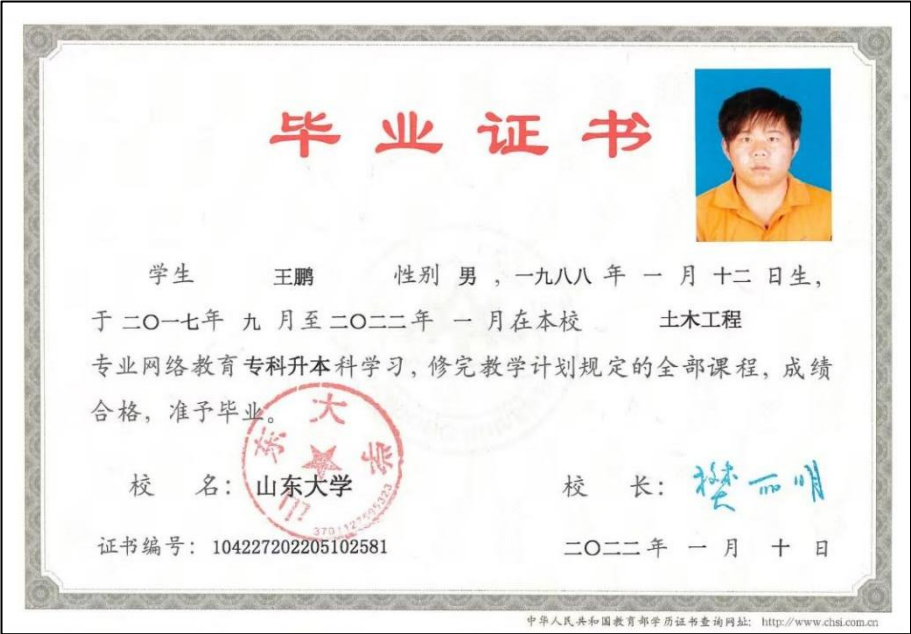 毕业证书
学生 王鹏 性别 男 ，一九八八 年 一 月 十二 日生，
于 二〇一七年 九 月至 二〇二二年 一 月在本校 土木工程
专业网络教育 专科升本科学习，修完教学计划规定的全部课程，成绩
合格，准予毕业。
山东大学
3701127595323
校 名： 山东大学 校 长： 樊丽明
证书编号： 104227202205102581 二〇二二年 一 月 十 日
中华人民共和国教育部学历证书查询网址： http://www.chsi.com.cn